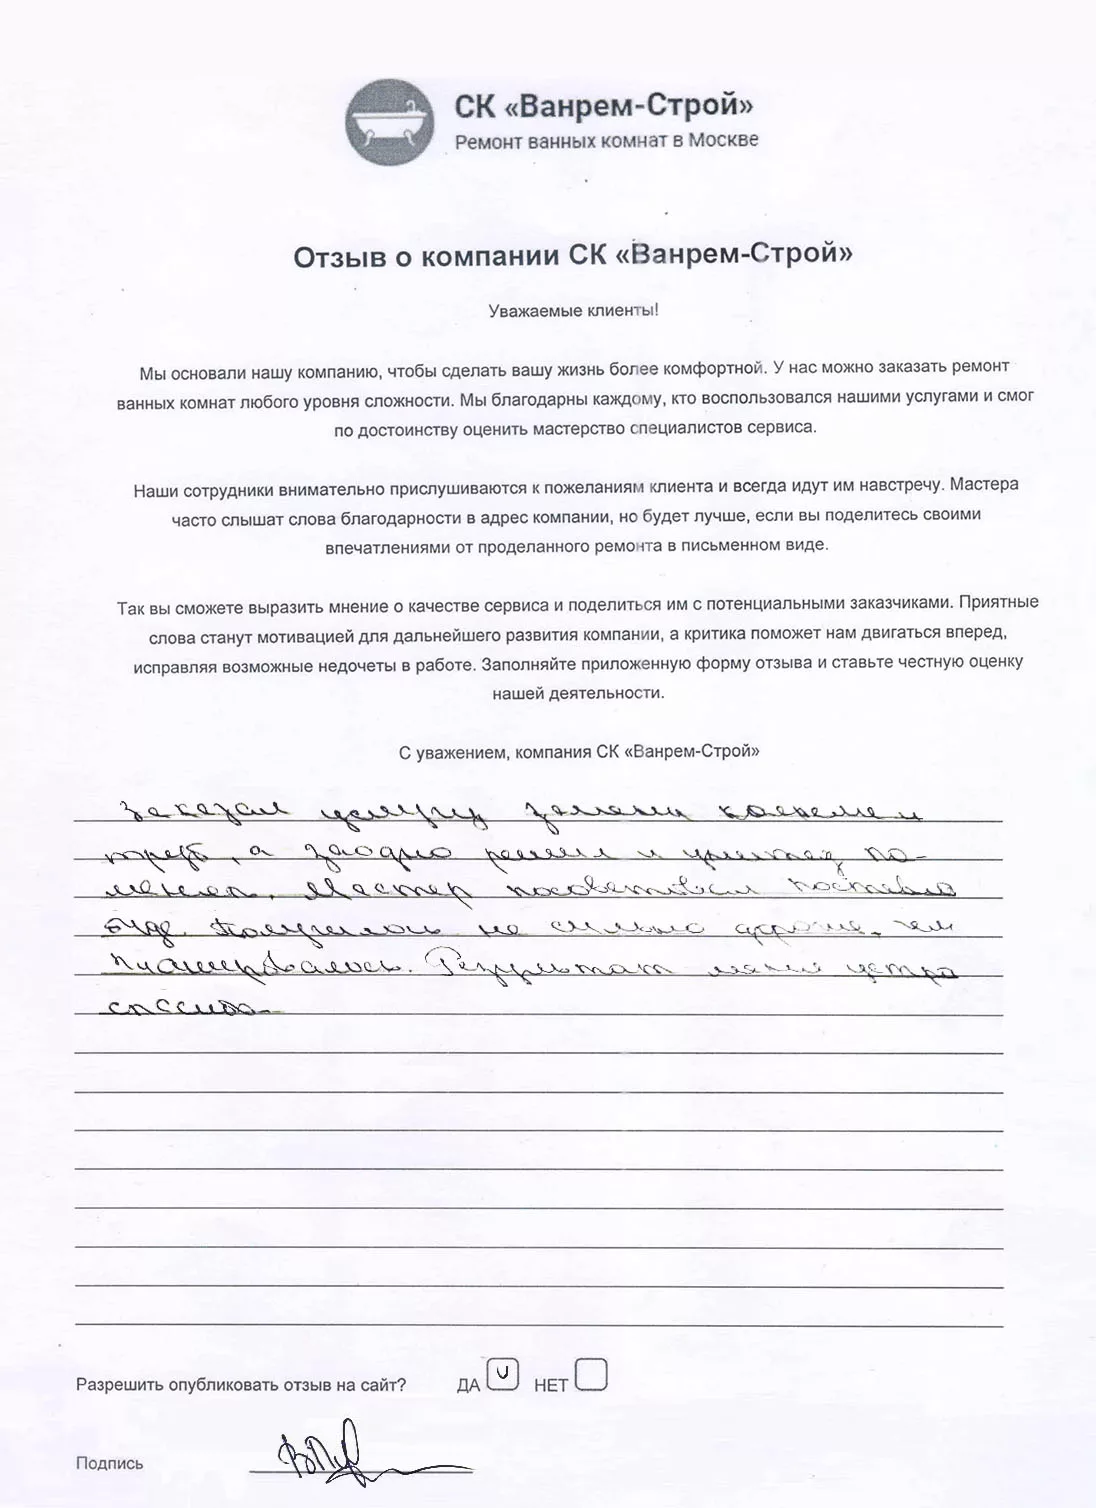 СК «Ванрем-Строй»
Ремонт ванных комнат в Москве
Отзыв о компании СК «Ванрем-Строй»
Уважаемые клиенты!
Мы основали нашу компанию, чтобы сделать вашу жизнь более комфортной. У нас можно заказать ремонт
ванных комнат любого уровня сложности. Мы благодарны каждому, кто воспользовался нашими услугами и смог
по достоинству оценить мастерство специалистов сервиса.
Наши сотрудники внимательно прислушиваются к пожеланиям клиента и всегда идут им навстречу. Мастера
часто слышат слова благодарности в адрес компании, но будет лучше, если вы поделитесь своими
впечатлениями от проделанного ремонта в письменном виде.
Так вы сможете выразить мнение о качестве сервиса и поделиться им с потенциальными заказчиками. Приятные
слова станут мотивацией для дальнейшего развития компании, а критика поможет нам двигаться вперед,
исправляя возможные недочеты в работе. Заполняйте приложенную форму отзыва и ставьте честную оценку
нашей деятельности.
С уважением, компания СК «Ванрем-Строй»
Заказал услугу замены
труб, а заодно решил и унитаз по-
менять. Мастер посоветовал поставить
биде. Получилось не сильно дороже, чем
планировалось. Результат меня устро
спасибо
Разрешить опубликовать отзыв на сайт? ДА НЕТ
Подпись